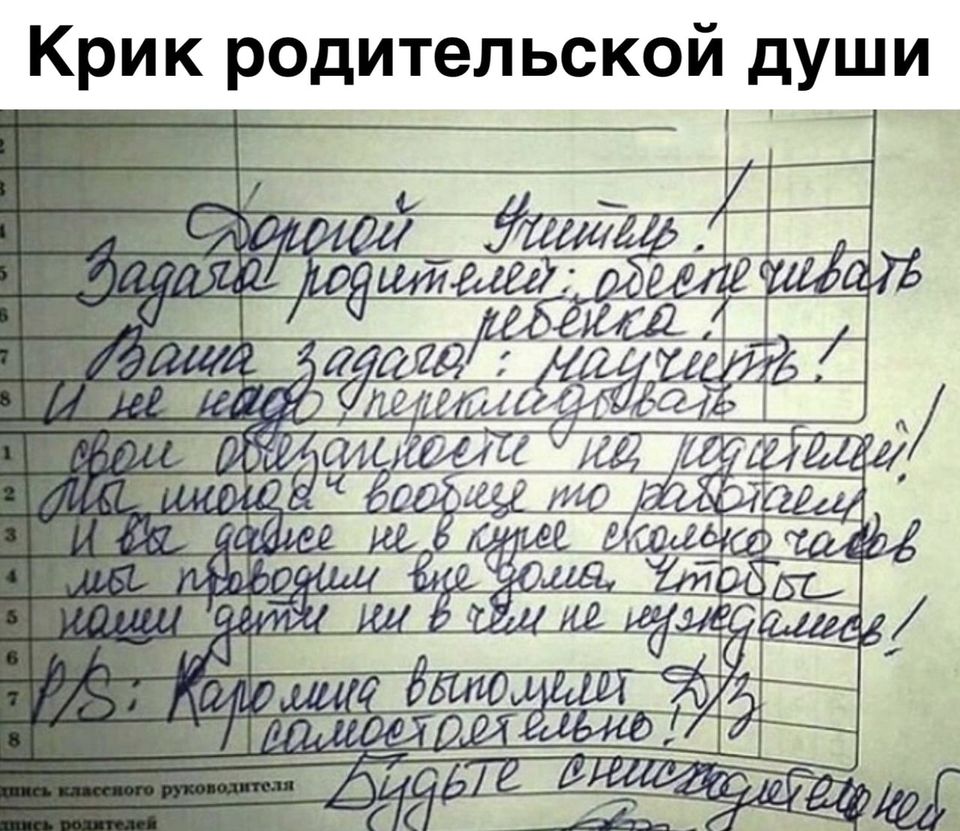 Крик родительской души
2
3
4
5
6
7
8
Дорогой Учитель!
Задача родителей: обеспечивать
ребёнка!
Ваша задача: научить!
И не надо перекладывать
1 свои обязанности на родителей!
2 Мы иногда вообще то работаем
3 И Вы даже не в курсе сколько часов
4 мы проводим вне дома, чтобы
5 наши дети ни в чём не нуждались!
6
7 P/S: Каролина выполняет Д/З
8 самостоятельно!
Будьте снисходительней
дпись классного руководителя
дпись родителей